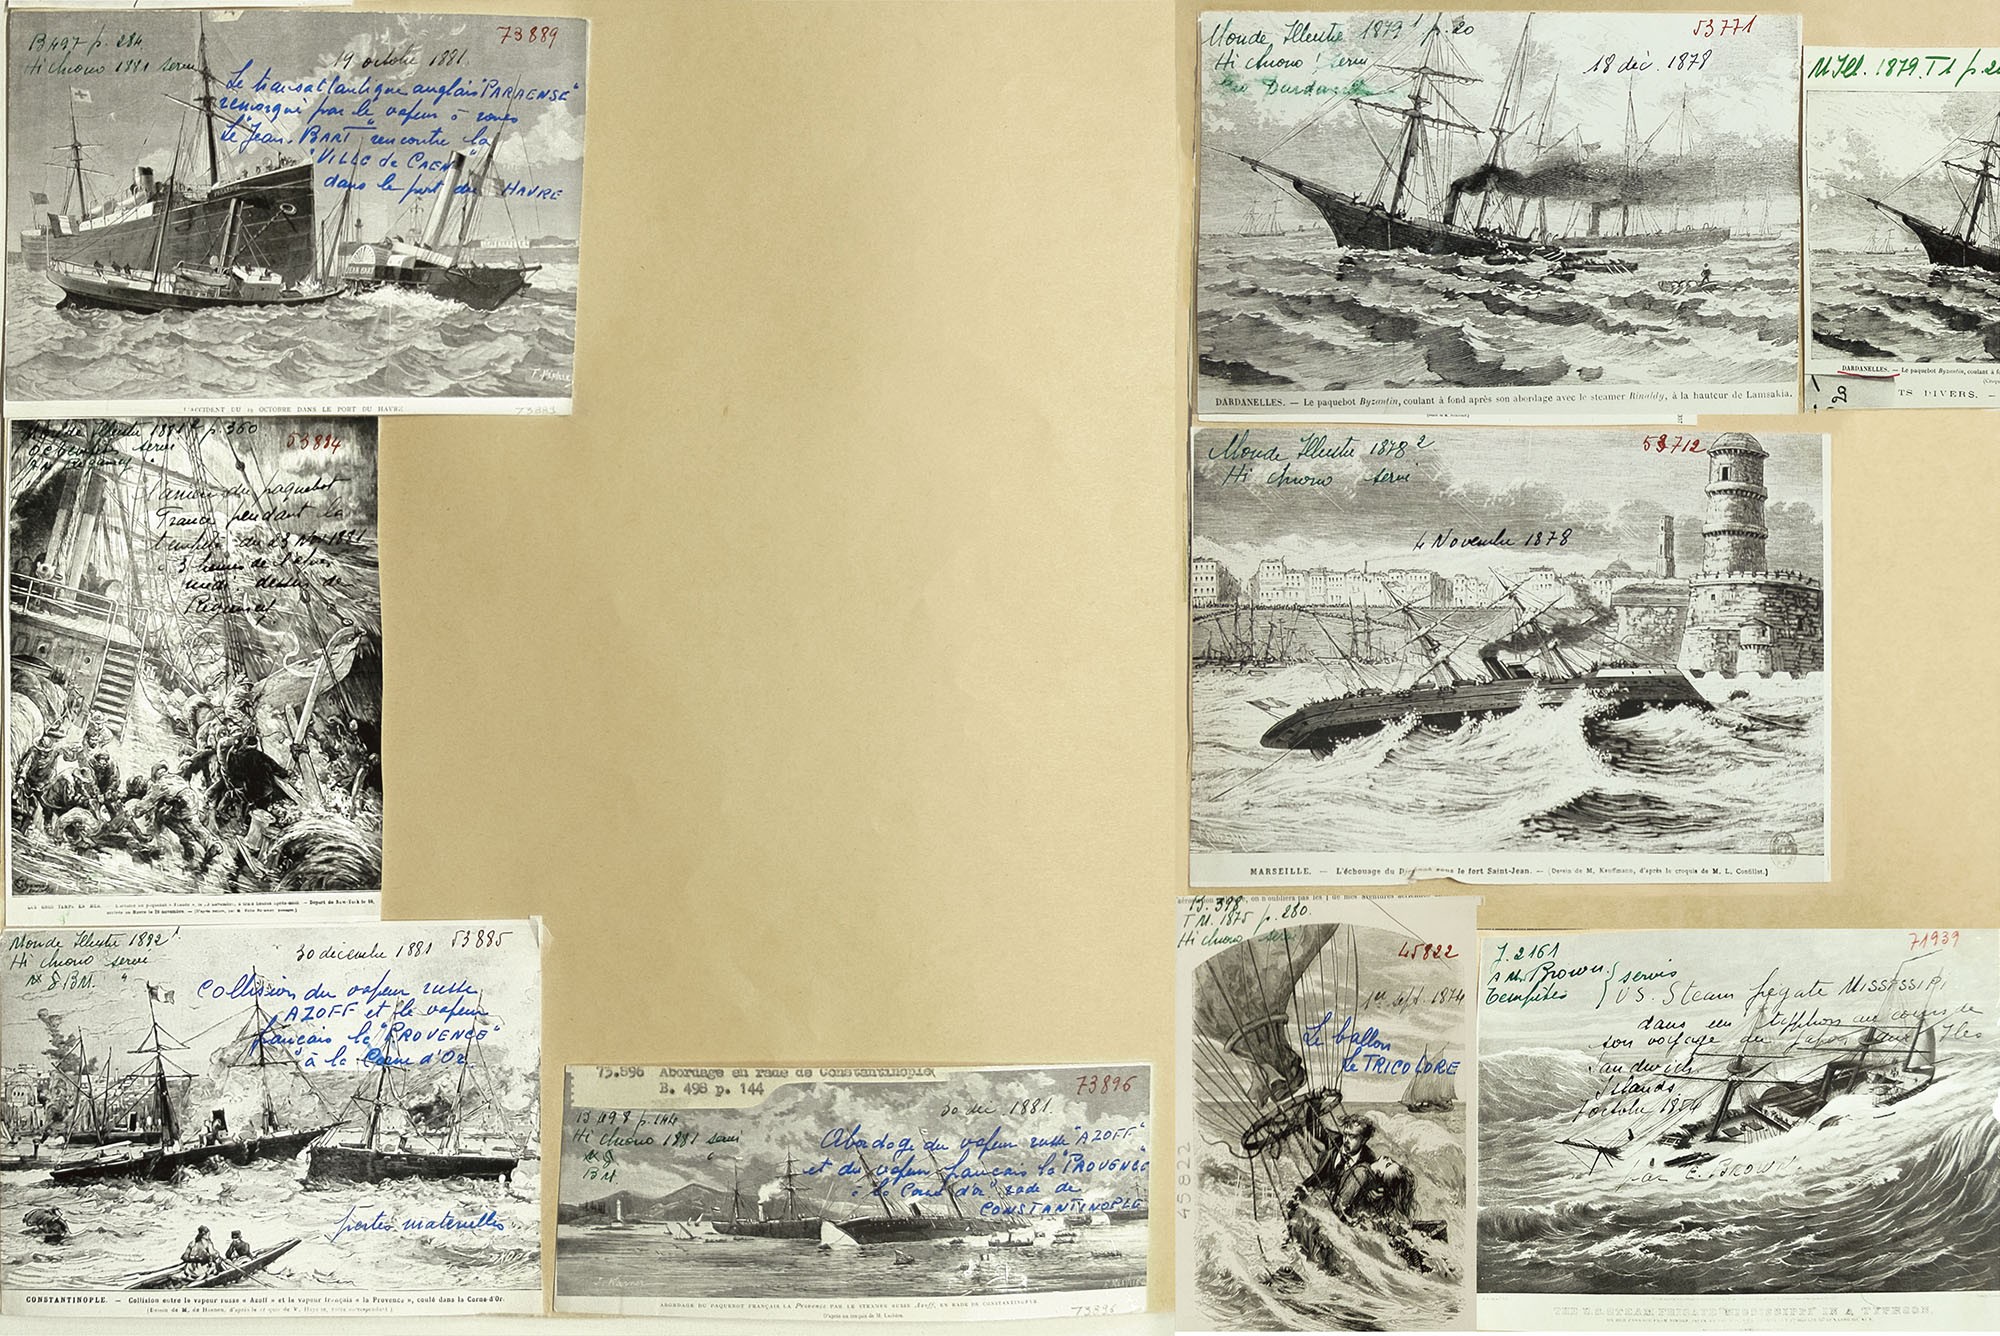 B497 p. 284
Hi chrono 1881 servi
73889
19 octobre 1881.
Le transatlantique anglais "PARAENSE"
remorqué par le vapeur à roues
Le "Jean-BART" rencontre la
"VILLE de CAEN"
dans le port du HAVRE
PARAENSE
JEAN BART
L'ACCIDENT DU 19 OCTOBRE DANS LE PORT DU HAVRE
73889
Monde Illustré 1881 2 p. 360
Tempêtes servi
53884
L'arrière du paquebot
France pendant la
tempête du 23 Nov 1881
à 3 heures de l'après
midi dessin de
Départ de New-York le
arrivée au Havre le 29 novembre.
Monde Illustré 1882 1
Hi chrono servi
30 décembre 1881
53885
Collision du vapeur russe
AZOFF et le vapeur
français la "PROVENCE"
à la Corne d'Or
pertes matérielles
CONSTANTINOPLE. — Collision entre le vapeur russe « Azoff » et le vapeur français « la Provence », coulé dans la Corne-d'Or.
73.896 Abordage en rade de Constantinople
B. 498 p. 144
73896
B 498 p. 144
Hi chrono 1881 servi
30 déc 1881.
Abordage du vapeur russe "AZOFF"
et du vapeur français la "PROVENCE"
à la Corne d'or rade de
CONSTANTINOPLE
ABORDAGE DU PAQUEBOT FRANÇAIS LA Provence PAR LE STEAMER RUSSE Azoff, EN RADE DE CONSTANTINOPLE.
73896
Monde Illustré 1879 1 p. 20
Hi chrono servi
53771
18 déc. 1878
DARDANELLES. — Le paquebot Byzantin, coulant à fond après son abordage avec le steamer Rinaldy, à la hauteur de Lamsakia.
M Ill. 1879 T1 p. 20
DARDANELLES. — Le paquebot Byzantin, coulant à
TS DIVERS. —
20
Monde Illustré 1878 2
Hi chrono servi
53712
4 Novembre 1878
MARSEILLE. — L'échouage du sous le fort Saint-Jean. — (Dessin de M. Kauffmann, d'après le croquis de M. L. Confillet.)
B. 398
T M. 1875 p. 280.
Hi chrono servi
45822
1er sept. 1874
Le ballon
le TRICOLORE
45822
7.2161
Brown
Tempêtes
servis
71939
U.S. Steam frégate MISSISSIPI
dans un typhon au cours de
son voyage du Japon aux Iles
Sandwich
Islands
7 octobre 1854
par E. BROWN
THE U.S. STEAM FRIGATE MISSISSIPPI IN A TYPHOON.